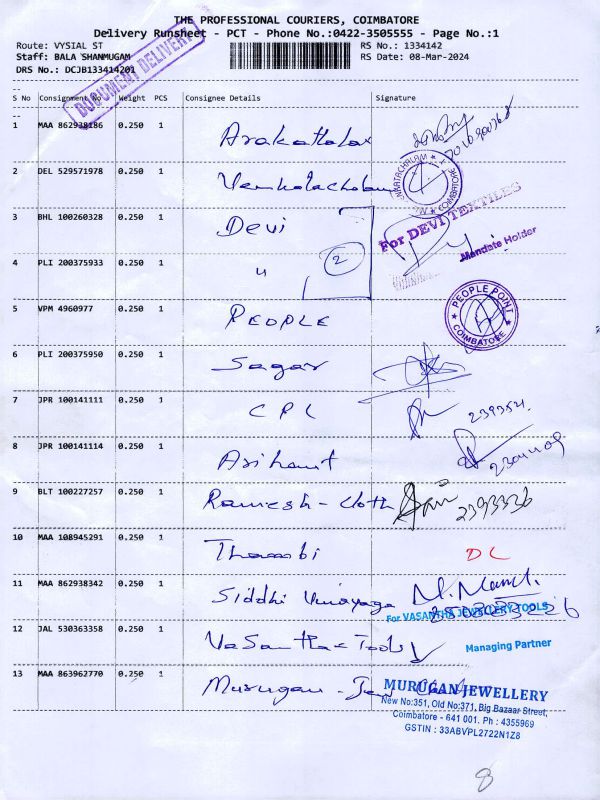 THE PROFESSIONAL COURIERS, COIMBATORE
Delivery Runsheet - PCT - Phone No.:0422-3505555 - Page No.:1
Route: VYSIAL ST RS No.: 1334142
Staff: BALA SHANMUGAM RS Date: 08-Mar-2024
DRS No.: DCJB133414201
DOCUMENT DELIVERY
S No Consignment No Weight PCS Consignee Details Signature
1 MAA 862938186 0.250 1
2 DEL 529571978 0.250 1 Venkatachalam
VENKATACHALAM COIMBATORE
3 BHL 100260328 0.250 1 Devi
For DEVI TEXTILES
Mandate Holder
4 PLI 200375933 0.250 1 " 2
5 VPM 4960977 0.250 1 PEOPLE
PEOPLE POINT COIMBATORE
6 PLI 200375950 0.250 1 Sagar
7 JPR 100141111 0.250 1 CPL
8 JPR 100141114 0.250 1 Arihant
9 BLT 100227257 0.250 1 Ramesh - cloth 2393336
10 MAA 108945291 0.250 1 Thambi DC
11 MAA 862938342 0.250 1 Siddhi Vinayaga
For VASANTHA JEWELLERY TOOLS
12 JAL 530363358 0.250 1 Vasantha Tools
Managing Partner
13 MAA 863962770 0.250 1 Murugan - Jew
MURUGAN JEWELLERY
New No:351, Old No:371, Big Bazaar Street,
Coimbatore - 641 001. Ph : 4355969
GSTIN : 33ABVPL2722N1Z8
8